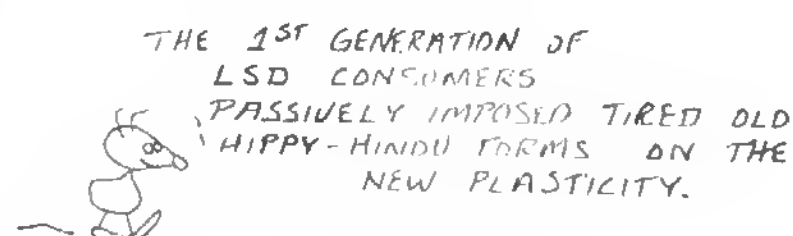 THE 1ST GENERATION OF
LSD CONSUMERS
PASSIVELY IMPOSED TIRED OLD
HIPPY-HINDU FORMS ON THE
NEW PLASTICITY.